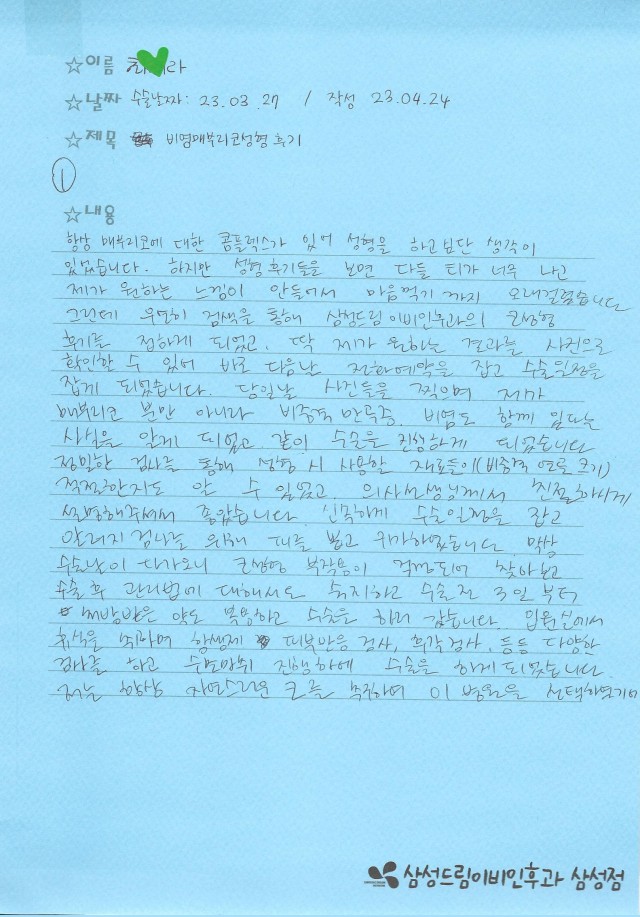 ☆이름 최 라
☆날짜 수술날짜: 23.03.27 / 작성 23.04.24
☆제목 비염매부리코성형 후기
①
☆내용
항상 매부리코에 대한 콤플렉스가 있어 성형을 하고싶단 생각이
있었습니다. 하지만 성형후기들을 보면 다들 티가 너무 나고
제가 원하는 느낌이 안들어서 마음먹기까지 오래걸렸습니다
그런데 우연히 검색을 통해 삼성드림이비인후과의 코성형
후기를 접하게 되었고, 딱 제가 원하는 결과를 사전으로
확인할 수 있어 바로 다음날 전화예약을 잡고 수술일정을
잡게 되었습니다. 당일날 사진들을 찍으며 제가
매부리코 뿐만 아니라 비중격만곡증, 비염도 함께 있다는
사실을 알게 되었고 같이 수술을 진행하게 되었습니다
정밀한 검사를 통해 성형 시 사용할 재료들이(비중격 연골 크기)
적절한지도 알 수 있었고, 의사선생님께서 친절하시게
설명해주셔서 좋았습니다. 신속하게 수술일정을 잡고
알러지검사를 위해 피를 뽑고 귀가하였습니다. 막상
수술날이 다가오니 코성형 부작용이 걱정되어 찾아보고
수술 후 관리법에 대해서도 숙지하고 수술전 3일부터
처방받은 약도 복용하고 수술을 하러 갔습니다. 입원실에서
휴식을 취하며 항생제 피부반응검사, 후각검사, 등등 다양한
검사를 하고 수면마취 진행하에 수술을 하게되었습니다.
저는 항상 자연스러운 코를 추구하며 이 병원을 선택하였기에
삼성드림이비인후과 삼성점